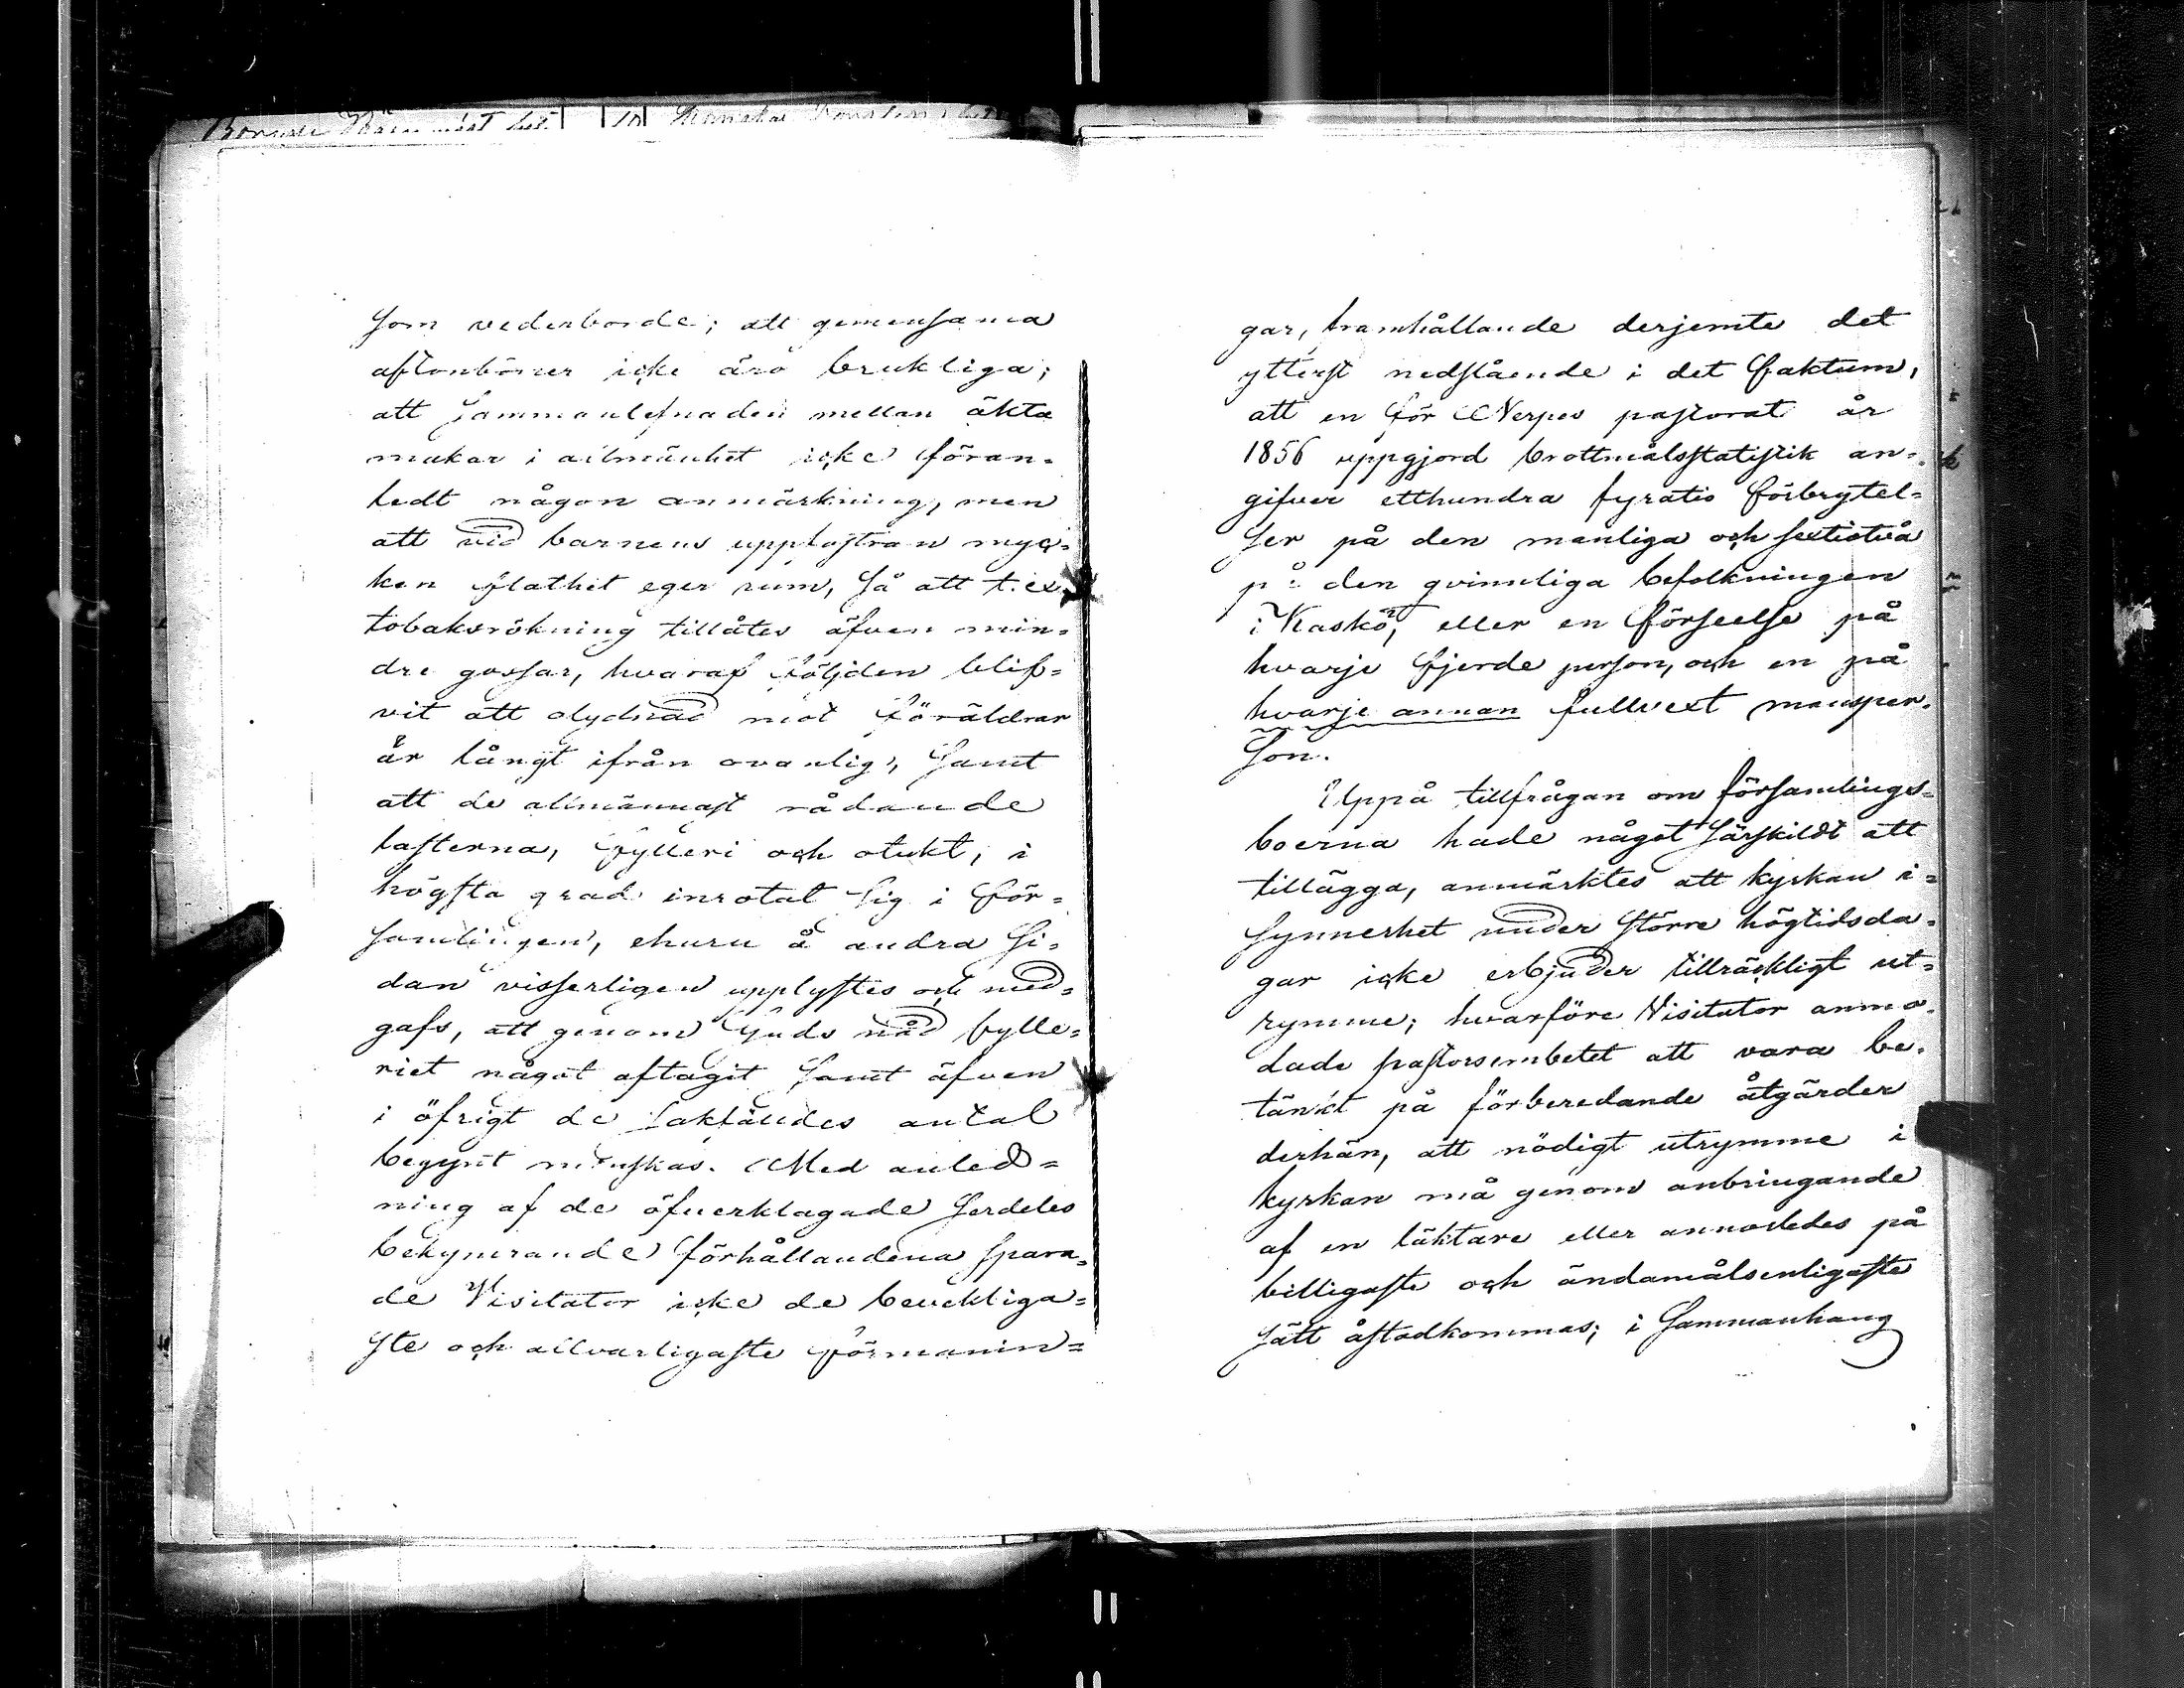 som vederborde; att gemensama
aftonböner icke äro brukliga;
att sammanlefnaden mellan äkta
makar i allmänhet icke föran-
ledt någon anmärkning, men
att vid barnens uppfostran myc-
ken flathet eger rum, så att t. ex.
tobaksrökning tillåtes äfven min-
dre gossar, hvaraf följden blif-
vit att olydnad mot föräldrar
är långt ifrån ovanlig, samt
att de allmännast rådande
lasterna, fylleri och otukt, i
högsta grad inrotat sig i för-
samlingen, ehuru å andra si-
dan visserligen upplystes och med-
gafs, att genom Guds nåd fylle-
riet något aftagit samt äfven
i öfrigt de sakfälldes antal
begynt minskas. Med anled-
ning af de öfverklagade serdeles
bekymrande förhållandena spara-
de Visitator icke de bevekliga-
ste och allvarligaste förmanin-
gar, framhållande derjemte det
ytterst nedslående i det faktum,
att en för Nerpes pastorat år
1856 uppgjord brottmålsstatistik an-
gifver etthundra fyratio förbrytel-
ser på den manliga och sextiotvå
på den qvinnliga befolkningen
i Kaskö, eller en förseelse på
hvarje fjerde person, och en på
hvarje annan fullvext mansper-
son.
Uppå tillfrågan om församlings-
boerna hade något särskildt att
tillägga, anmärktes att kyrkan i-
synnerhet under större högtidsda-
gar icke erbjuder tillräckligt ut-
rymme; hvarföre Visitator anmo-
dade pastorsembetet att vara be-
tänkt på förberedande åtgärder
derhän, att nödigt utrymme i
kyrkan må genom anbringande
af en läktare eller annorledes på
billigaste och ändamålsenligaste
sätt åstadkommas; i sammanhang